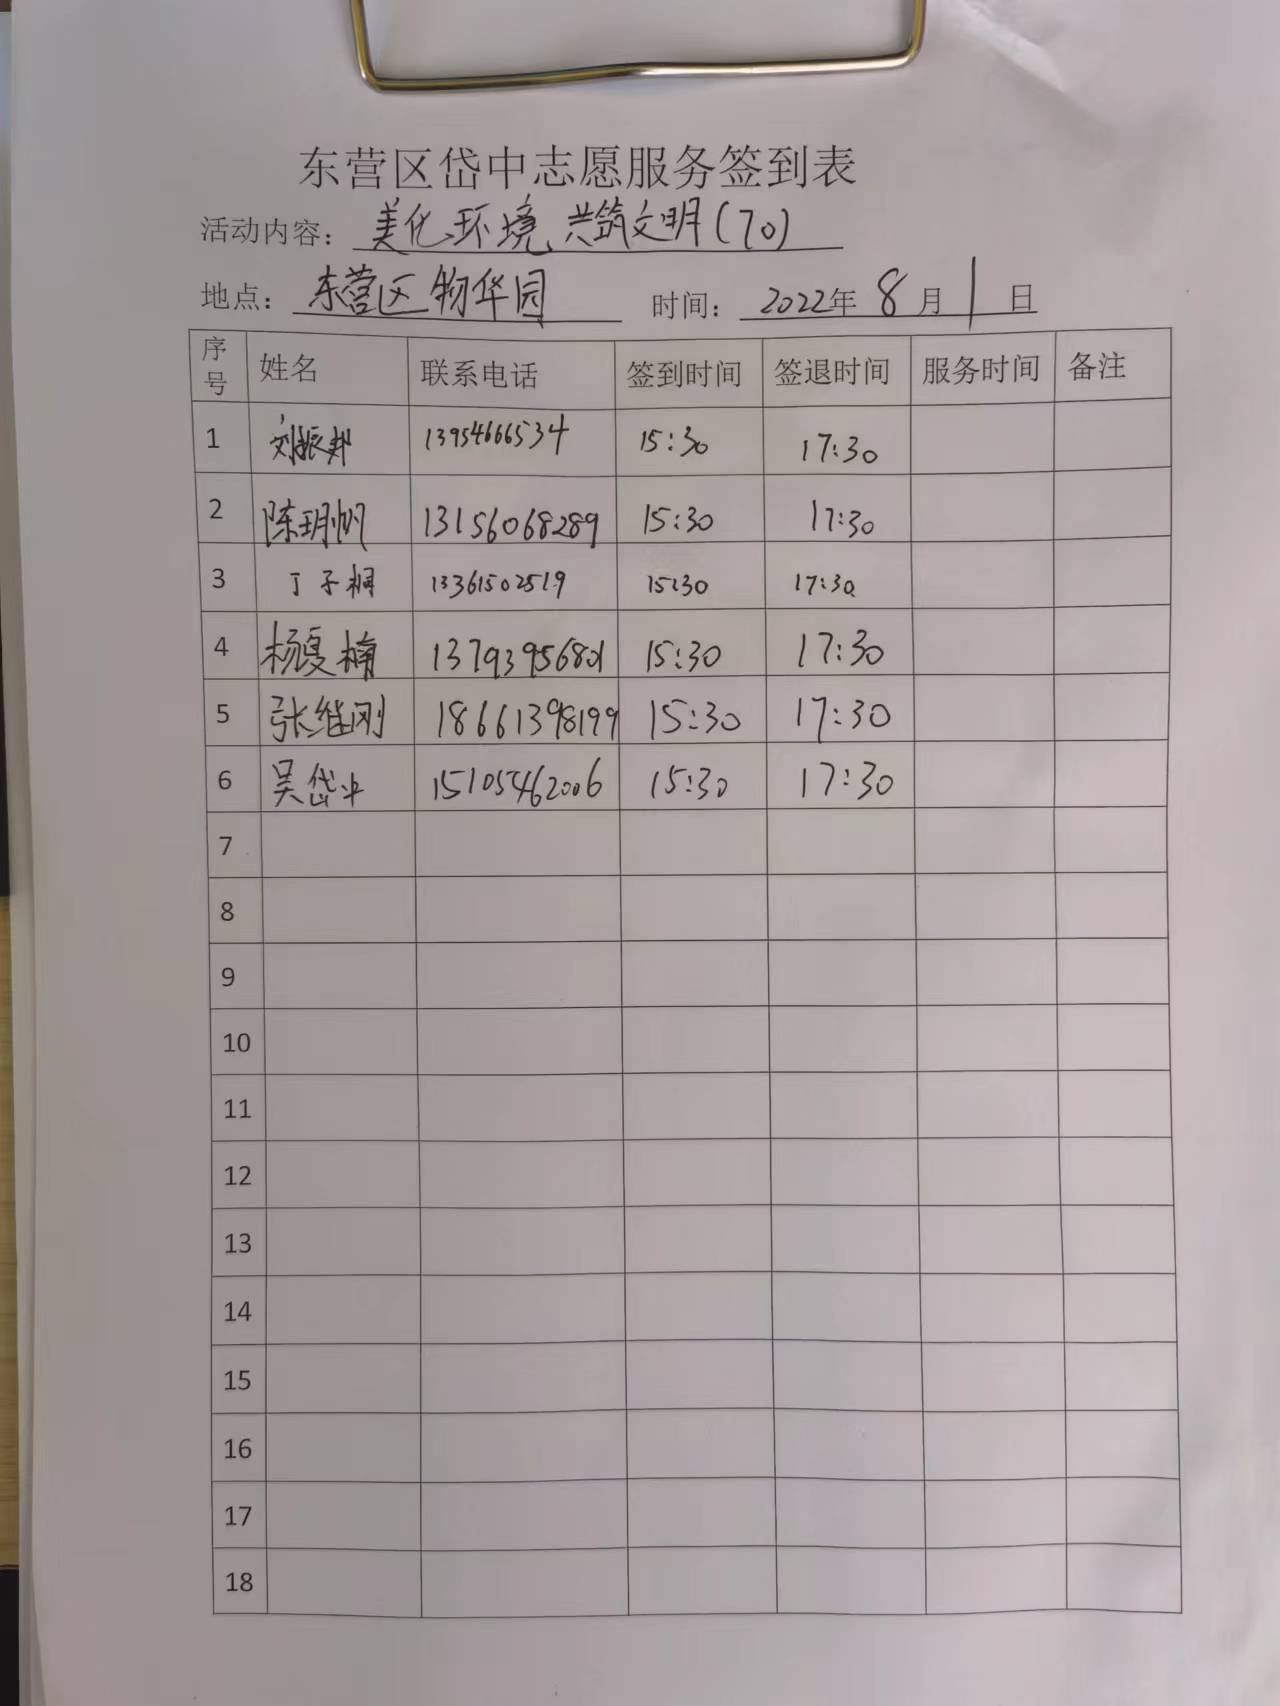 东营区岱中志愿服务签到表
活动内容：美化环境、共筑文明(70)
地点：东营区物华园 时间：2022年8月1日
序号 姓名 联系电话 签到时间 签退时间 服务时间 备注
1 刘振邦 13954666534 15:30 17:30
2 陈玥帆 13156068289 15:30 17:30
3 丁子桐 13361502519 15:30 17:30
4 杨夏楠 13793956801 15:30 17:30
5 张继刚 18661398199 15:30 17:30
6 吴岱中 15105462006 15:30 17:30
7
8
9
10
11
12
13
14
15
16
17
18